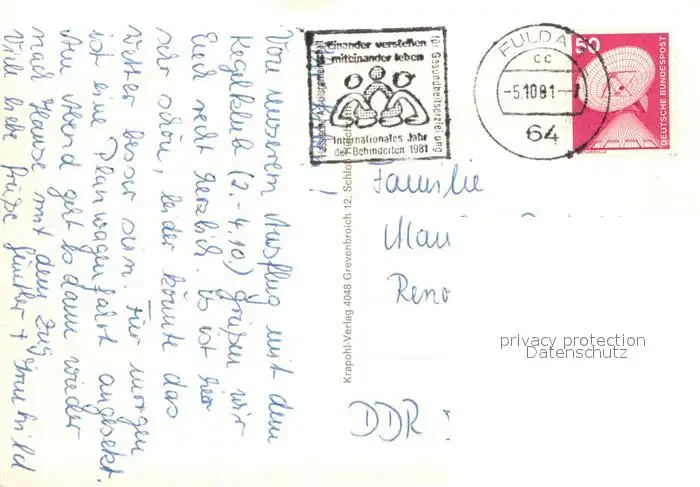 Von unserem Ausflug mit dem
Kegelklub (2.-4.10.) grüßen wir
Euch recht herzlich. Es ist hier
sehr schön, leider könnte das
Wetter besser sein. Für morgen
ist eine Planwagenfahrt angesetzt.
Am Abend geht es dann wieder
nach Hause mit dem Zug.
Viele liebe Grüße Günther + Irmhild
Krapohl-Verlag 4048 Grevenbroich 12, Schloß
Einander verstehen
miteinander leben
für Gesundheitserziehung
Internationales Jahr
der Behinderten 1981
FULDA
cc
-5.10.81-
64
50
DEUTSCHE BUNDESPOST
Familie
Mau
Reno
DDR
privacy protection
Datenschutz